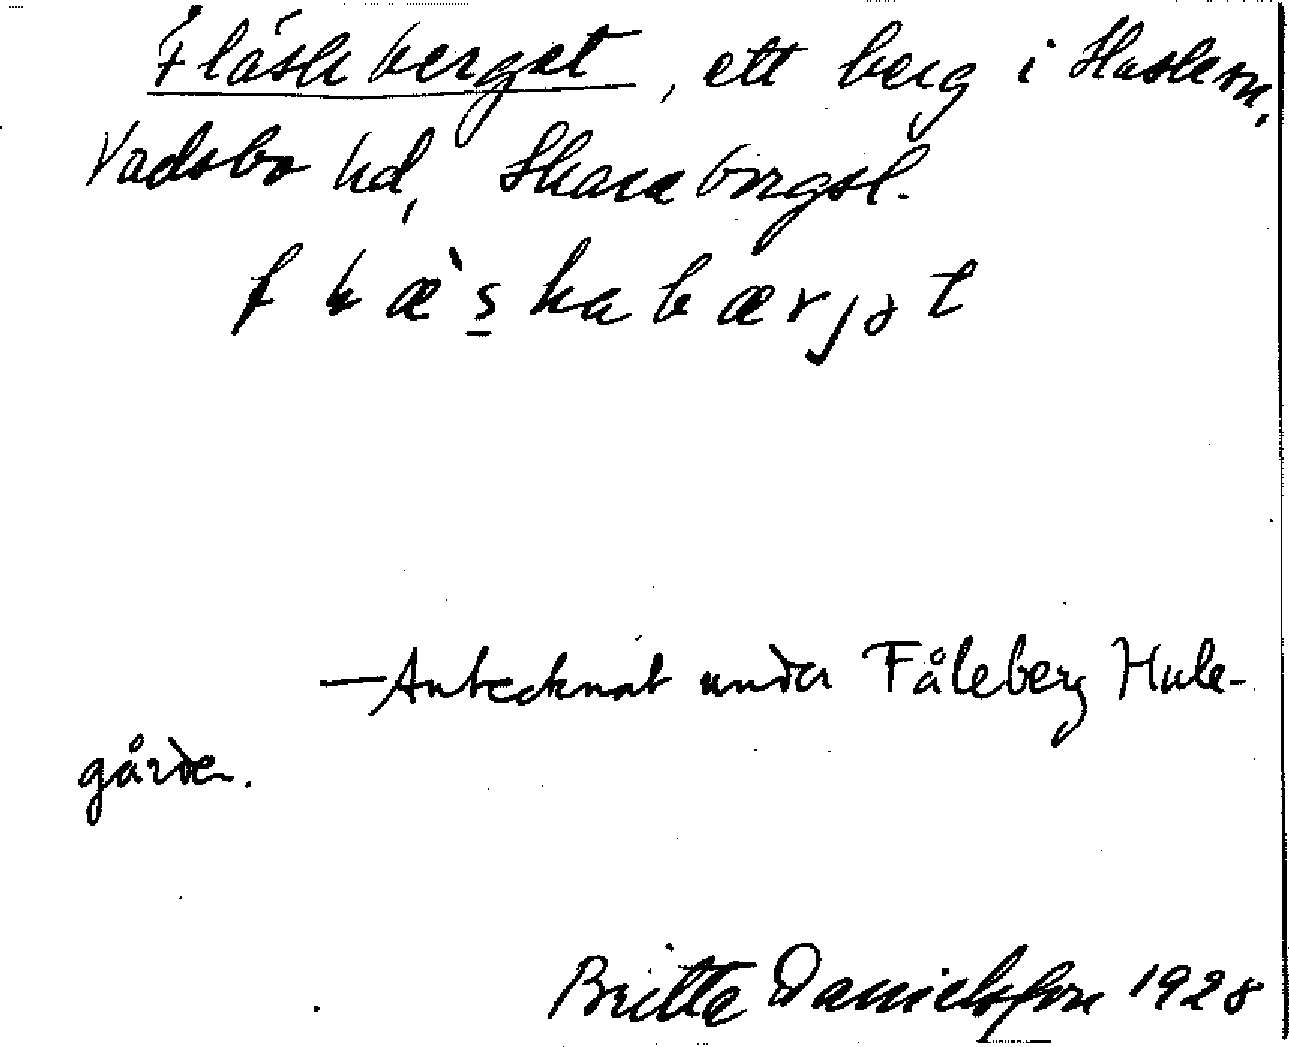 Fläskberget, ett berg i Hasslem,
Vadsbo hd, Skaraborgsl.
f l æ̀ s k a b æ r j ə t
—Antecknat under Fåleberg Hule-
gården.
Britta Danielsson 1928